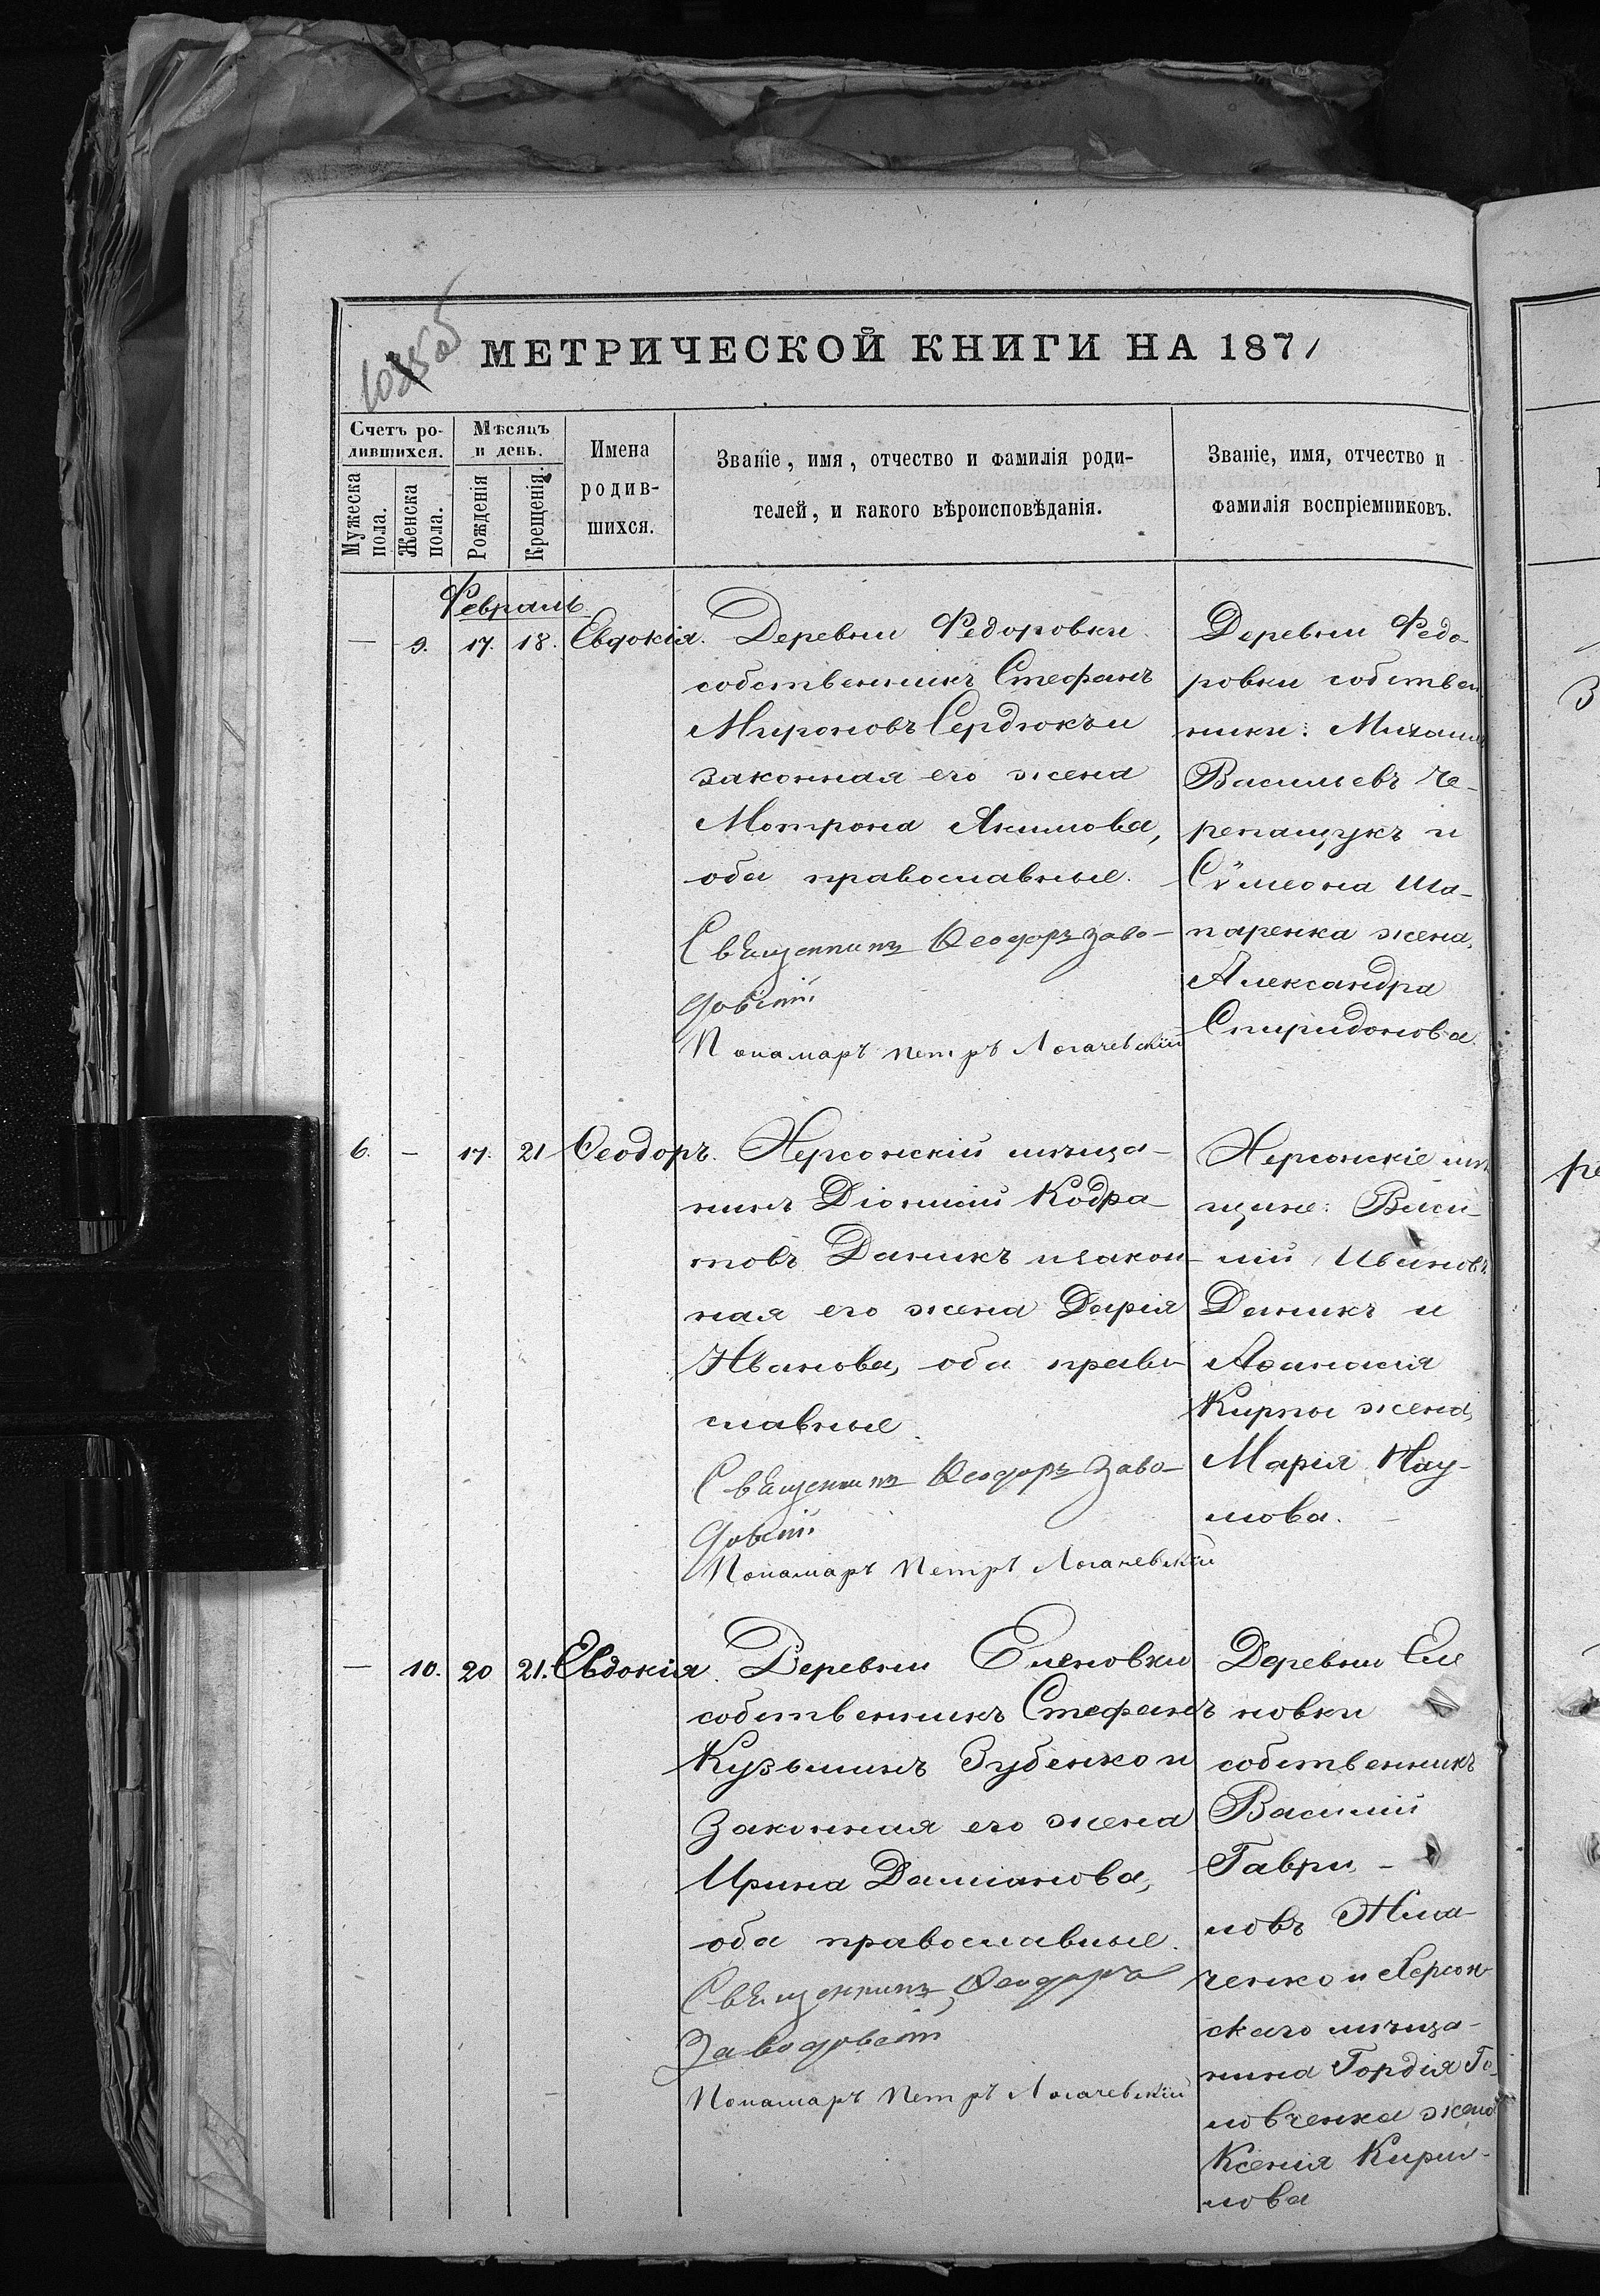 1035об
МЕТРИЧЕСКОЙ КНИГИ НА 1871
Счетъ ро-
дившихся.
Мужеска
пола.
Женска
пола.
Мѣсяцъ
и день.
Рожденія
Крещенія.
Имена
родив-
шихся.
Званіе, имя, отчество и фамилія роди-
телей, и какого вѣроисповѣданія.
Званіе, имя, отчество и
фамилія воспріемниковъ.
Февраль
— 9. 17. 18. Евдокія.
Деревни Федоровки
собственникъ Стефанъ
Мироновъ Сердюкъ и
законная его жена
Мотрона Акимова,
оба православные.
Священникъ Ѳеодоръ Заво-
довскій
Пономарь Петръ Логачевскій
Деревни Федо-
ровки собствен
ники: Михаилъ
Васильевъ Че-
репащукъ и
Сѵмеона Ша-
паренка жена,
Александра
Спиридонова.
6. — 17. 21 Ѳеодоръ.
Херсонскій мѣща-
нинъ Діонисій Кодра-
товъ Даникъ и закон-
ная его жена Дарія
Иванова, оба право-
славные.
Священникъ Ѳеодоръ Заво-
довскій
Пономарь Петръ Логачевскій
Херсонскіе мѣ
щане: Васи-
лій Ивановъ
Даникъ и
Аѳанасія
Кирпы жена,
Марія Нау-
мова.
— 10. 20 21. Евдокія.
Деревни Еленовки
собственникъ Стефанъ
Кузьминъ Зубенко и
законная его жена
Ирина Даміанова,
оба православные.
Священникъ Ѳеодоръ
Заводовскій
Пономарь Петръ Логачевскій
Деревни Еле
новки
собственникъ
Василій
Гаври-
ловъ
ченко и Херсон
скаго мѣща-
нина Гордія Го-
ловченка жена
Ксенія Кирил-
лова